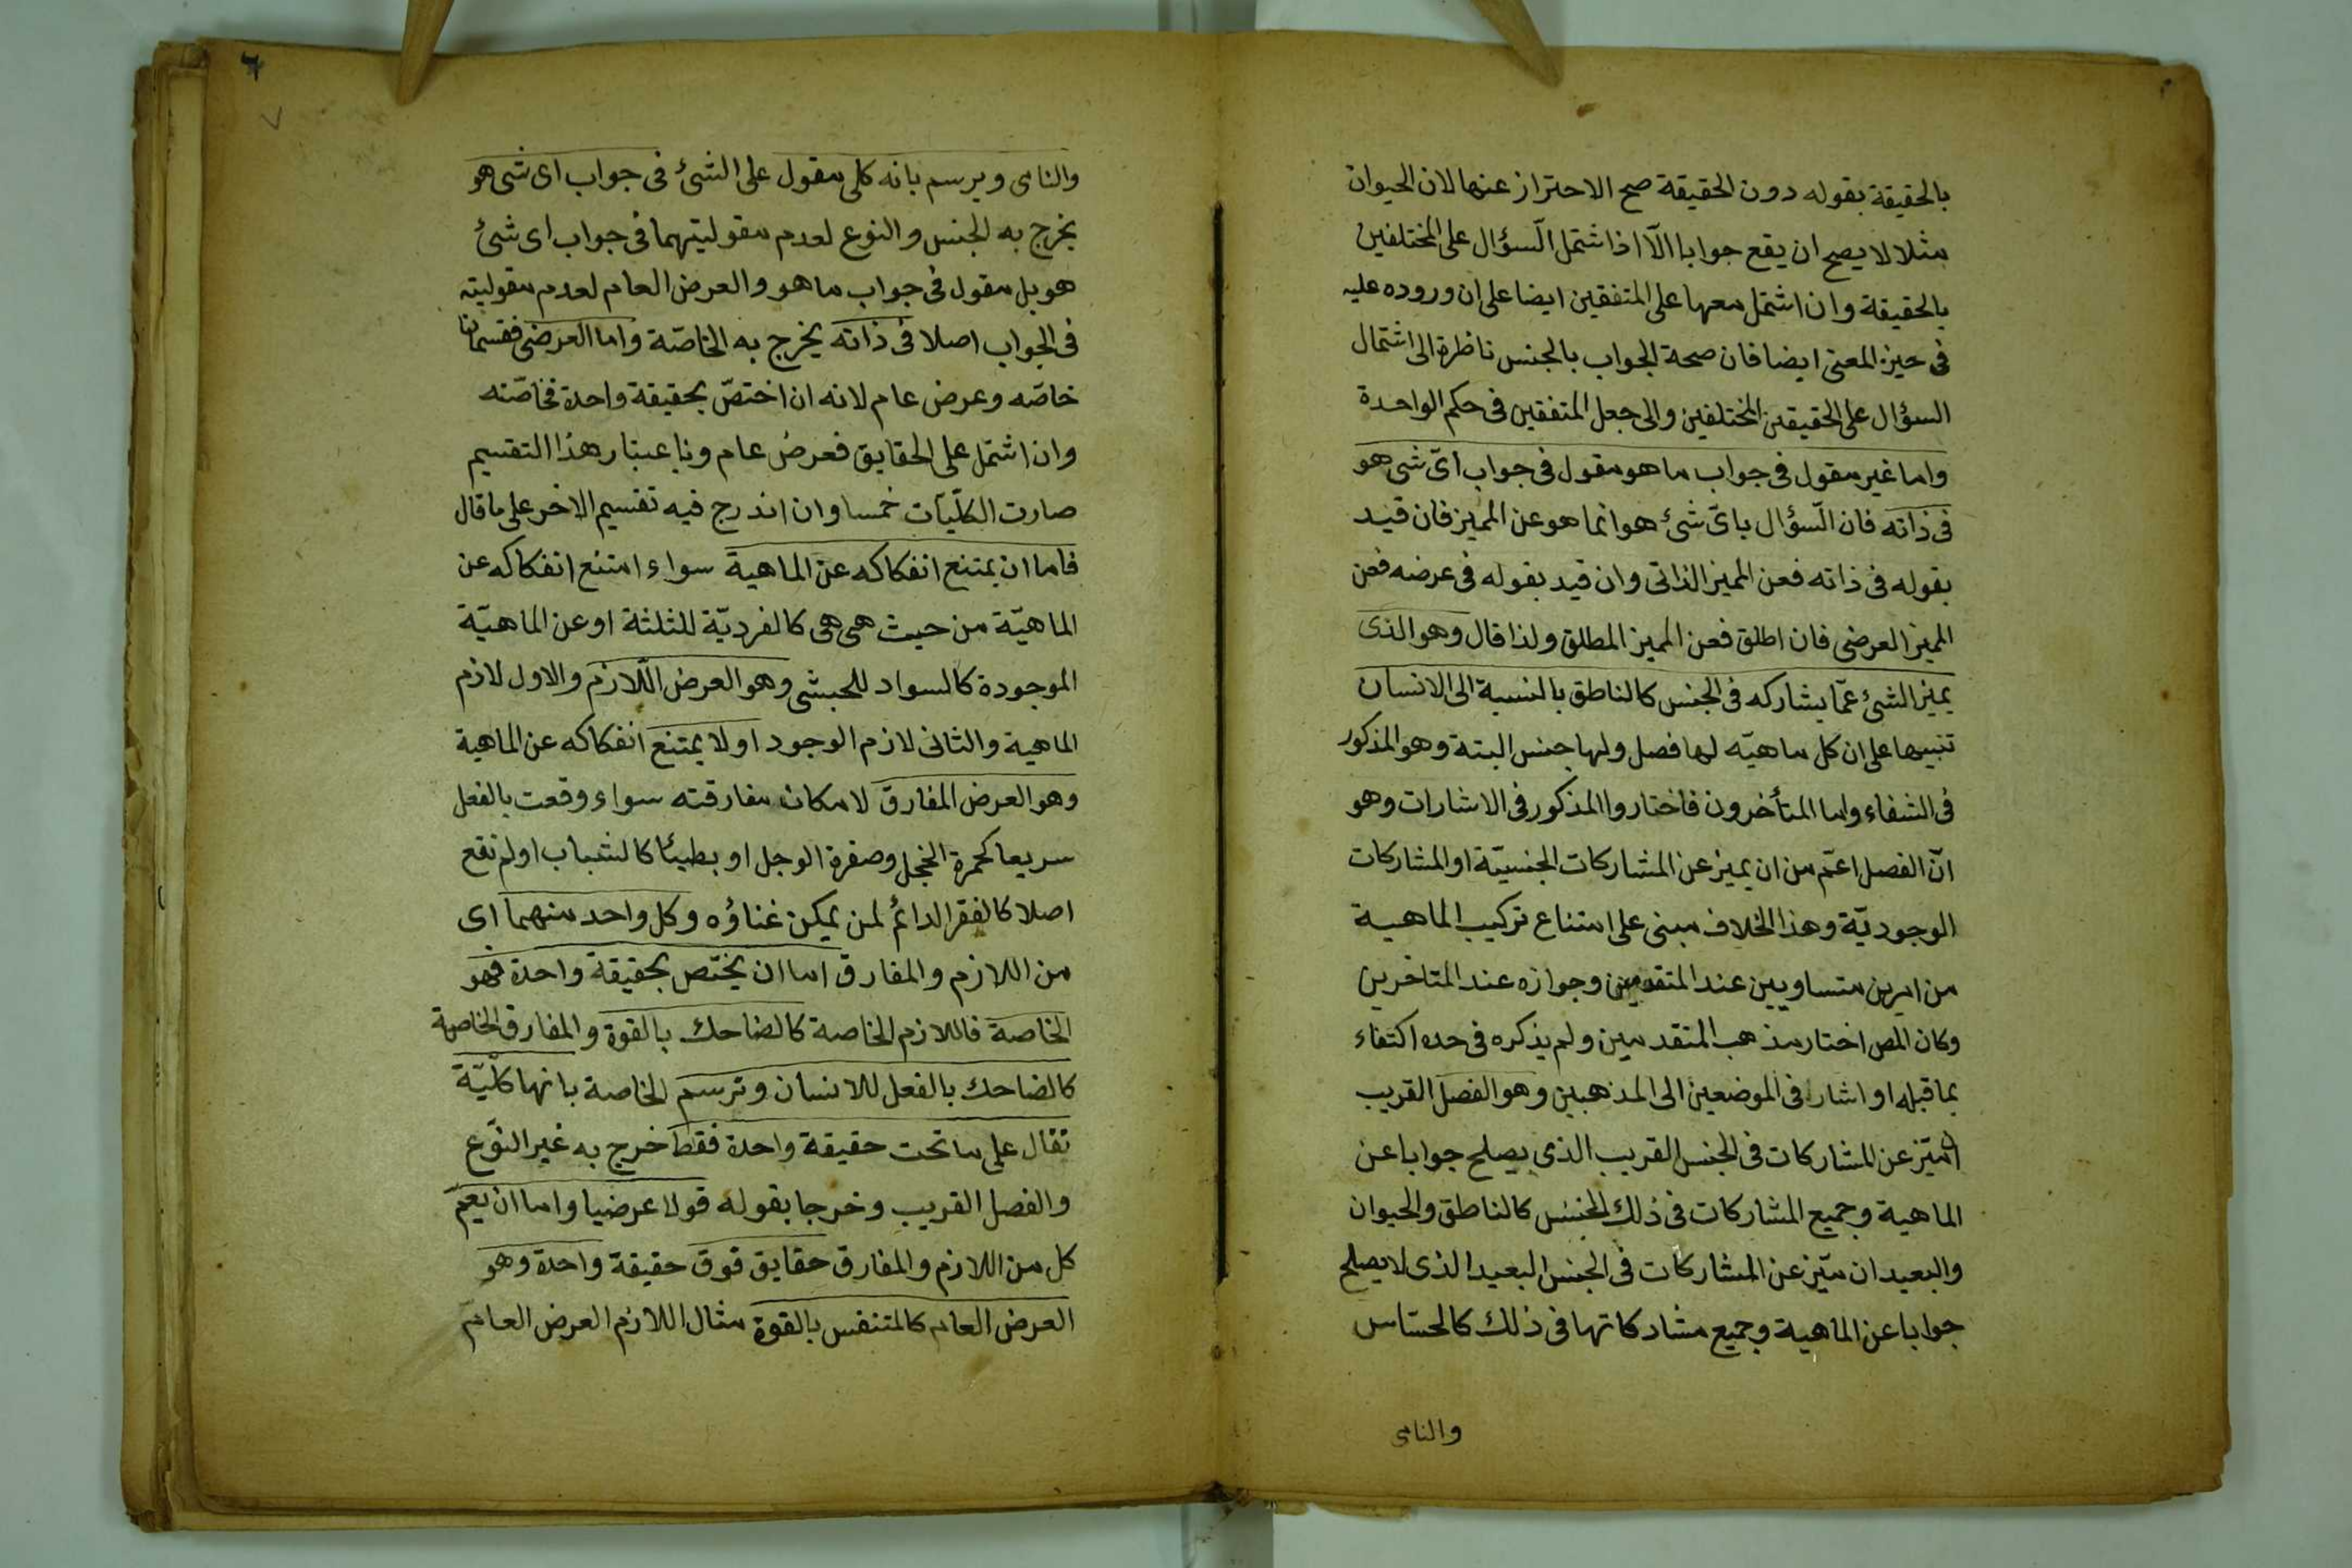 بالحقيقة بقوله دون الحقيقة صح الاحتراز عنها لان الحيوان
مثلا لا يصح ان يقع جوابا الّا اذا اشتمل السّؤال على المختلفين
بالحقيقة وان اشتمل معها على المتفقين ايضا على ان وروده عليه
فى حيز المعنى ايضا فان صحة الجواب بالجنس ناظرة الى اشتمال
السؤال على الحقيقتين المختلفين والى جعل المتفقين فى حكم الواحدة
واما غير مقول فى جواب ما هو مقول فى جواب اىّ شى هو
فى ذاته فان السّؤال باىّ شئ هو انما هو عن المميز فان قيد
بقوله فى ذاته فعن المميز الذاتى وان قيد بقوله فى عرضه فعن
المميز العرضى فان اطلق فعن المميز المطلق ولذا قال وهو الذى
يميز الشئ عمّا يشاركه فى الجنس كالناطق بالنسبة الى الانسان
تنبيها على ان كل ماهيّه لها فصل ولها جنس البتة وهو المذكور
فى الشفاء واما المتأخرون فاختاروا المذكور فى الاشارات وهو
انّ الفصل اعمّ من ان يميز عن المشاركات الجنسيّة او المشاركات
الوجوديّة وهذا الخلاف مبنى على امتناع تركيب الماهية
من امرين متساويين عند المتقدمين وجوازه عند المتاخرين
وكان المص اختار مذهب المتقدمين ولم يذكره فى حده اكتفاء
بما قبله او اشار فى الموضعين الى المذهبين وهو الفصل القريب
ان ميّز عن المشاركات فى الجنس القريب الذى يصلح جوابا عن
الماهية وجميع المشاركات فى ذلك الجنس كالناطق والحيوان
والبعيد ان ميّز عن المشاركات فى الجنس البعيد الذى لا يصلح
جوابا عن الماهية وجميع مشاركاتها فى ذلك كالحسّاس
والنامى
٦
٧
والنامى ويرسم بانه كلى مقول على الشئ فى جواب اى شى هو
يخرج به الجنس والنوع لعدم مقوليتهما فى جواب اى شئ
هو بل مقول فى جواب ما هو والعرض العام لعدم مقوليته
فى الجواب اصلا فى ذاته يخرج به الخاصّة واما العرضى فقسمان
خاصّه وعرض عام لانه ان اختصّ بحقيقة واحدة فخاصّته
وان اشتمل على الحقايق فعرض عام وباعتبار هذا التقسيم
صارت الكلّيّات خمسا وان اندرج فيه تقسيم الاخر على ما قال
فاما ان يمتنع انفكاكه عن الماهية سواء امتنع انفكاكه عن
الماهيّة من حيث هى هى كالفرديّة للثلثة او عن الماهيّة
الموجودة كالسواد للحبشى وهو العرض اللّازم والاول لازم
الماهية والثانى لازم الوجود او لا يمتنع انفكاكه عن الماهية
وهو العرض المفارق لامكان مفارقته سواء وقعت بالفعل
سريعا كحمرة الخجل وصفرة الوجل او بطيئا كالشباب او لم تقع
اصلا كالفقر الدائم لمن يمكن غناؤه وكل واحد منهما اى
من اللازم والمفارق اما ان يختّص بحقيقة واحدة فهو
الخاصة فاللازم الخاصة كالضاحك بالقوة والمفارق الخاصة
كالضاحك بالفعل للانسان وترسم الخاصة بانها كلّيّة
تقال على ما تحت حقيقة واحدة فقط خرج به غير النوّع
والفصل القريب وخرجا بقوله قولا عرضيا واما ان يعمّ
كل من اللازم والمفارق حقايق فوق حقيقة واحدة وهو
العرض العام كالمتنفس بالقوة مثال اللازم العرض العام